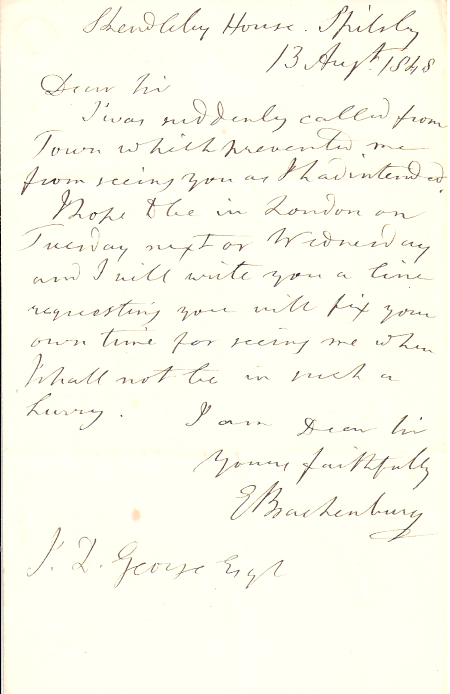 Skendleby House. Spilsby
13 Augt. 1848
Dear Sir
I was suddenly called from
Town which prevented me
from seeing you as I had intended.
I hope to be in London on
Tuesday next or Wednesday
and I will write you a line
requesting you will fix your
own time for seeing me when
I shall not be in such a
hurry. I am Dear Sir
Yours faithfully
E Brackenbury
J. Z. George Esqr